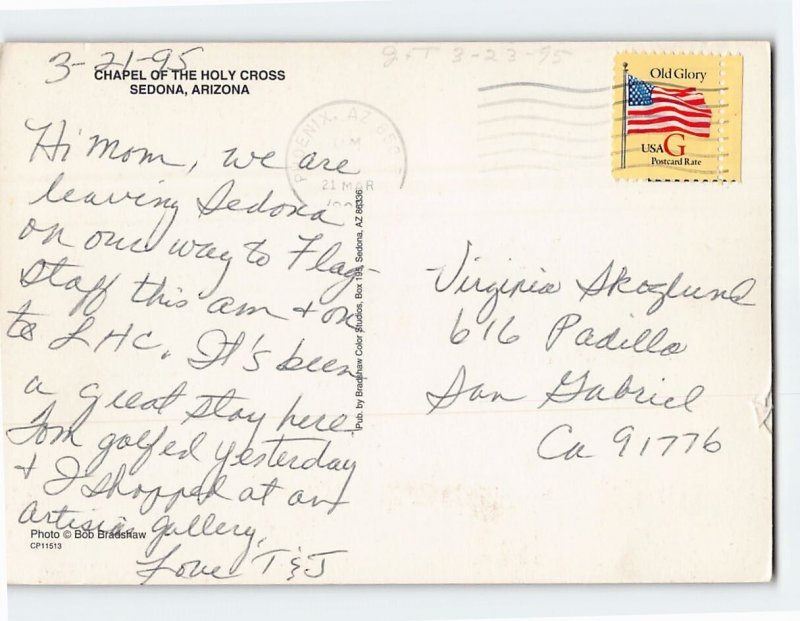 3-21-95
CHAPEL OF THE HOLY CROSS
SEDONA, ARIZONA
Hi Mom, we are
leaving Sedona
on our way to Flag-
staff this am & on
to LHC. It's been
a great stay here.
Tom golfed yesterday
& I shopped at an
artisia gallery,
Love T & J
Photo © Bob Bradshaw
CP11513
Pub. by Bradshaw Color Studios, Box 195, Sedona, AZ 86336
3-23-95
PHOENIX, AZ
21 MAR
Old Glory
USA G
Postcard Rate
Virginia Skoglund
616 Padilla
San Gabriel
Ca 91776